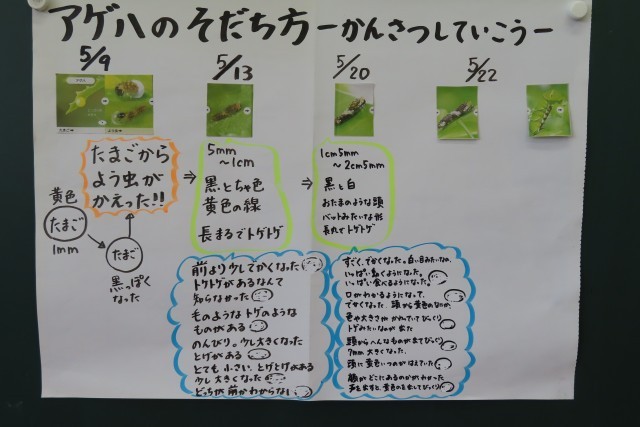 アゲハのそだち方 ーかんさつしていこうー
5/9
5/13
5/20
5/22
たまご➡
たまごから
よう虫が
かえった!!
黄色
たまご
1mm
たまご
黒っぽく
なった
5mm
〜1cm
黒とちゃ色
黄色の線
長まるでトゲトゲ
1cm5mm
〜2cm5mm
黒と白
おたまのような頭
バットみたいな形
長丸でトゲトゲ
前より少してかくなった
トゲトゲがあるなんて
知らなかった
ものようなトゲのような
ものがある
のんびり。少し大きくなった
とげがある
とても小さい。とげとげがある
少し大きくなった
どっちが前かわからない。
すごく、でかくなった。白い目みたいなの。
いっぱい動くようになった。
いっぱい食べるようになった。
口がわかるようになって、
でかくなった。頭から黄色のなにか。
色や大きさがかわっていてびっくり
トゲみたいなのが出た
頭からへんなものが出てびっくり
7mm大きくなった。
頭に黄色いつのがはえていた
顔がどこにあるのかがわかった